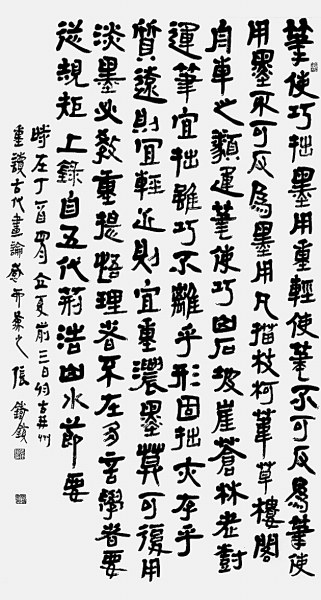 筆使巧拙墨用重輕使筆不可反爲筆使
用墨不可反爲墨用凡描枝柯葦草樓閣
舟車之類運筆使巧山石坡崖蒼林老樹
運筆宜拙雖巧不離乎形固拙亦存乎
質遠則宜輕近則宜重濃墨莫可復用
淡墨必教重提悟理者不在多言學者要
從規矩上錄自五代荊浩山水節要
時在丁酉四月立夏前三日於古并州
重讀古代畫論感而彔之張鐵鎖